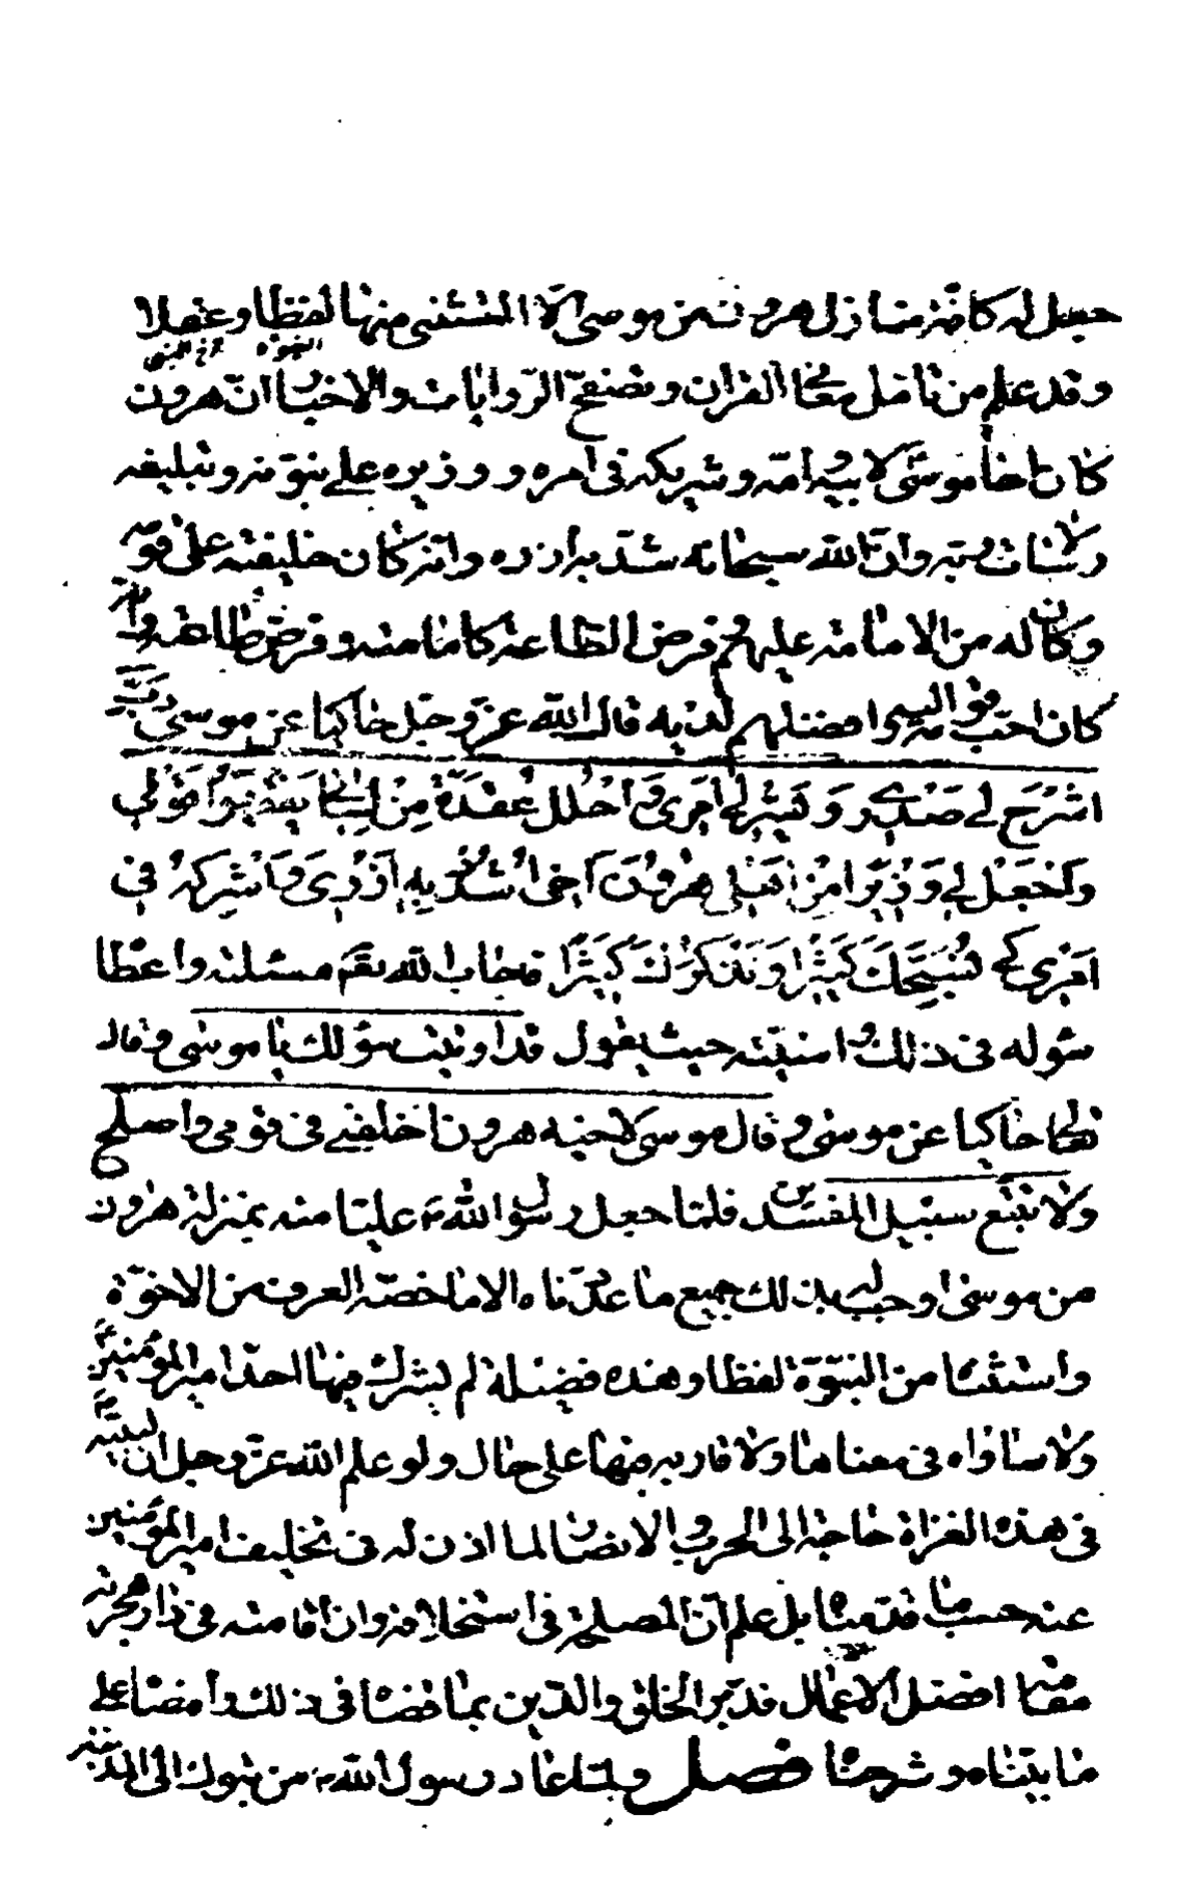 جعل له كافة منازل هرون من موسى الا المستثنى منها لفظا وعقلا
النبوة
وقد علم من تامل معاني القران وتصفح الروايات والاخبار ان هرون
كان اخا موسى لابيه وامه وشريكه في امره ووزيره على نبوته وتبليغه
رسالات ربه وان الله سبحانه شد به ازره وانه كان خليفته على قومه
وكان له من الامامة عليهم وفرض الطاعة كامامته وفرض طاعته وانه
كان احب قومه اليه وافضلهم لديه قال الله عز وجل حاكيا عن موسى رب
اشْرَحْ لي صَدْري وَيَسِّرْ لي اَمْري وَاحْلُلْ عُقْدَةً مِنْ لِسَاني يَفْقَهُوا قَوْلي
وَاجْعَلْ لي وَزيرًا مِنْ اَهْلي هٰرُونَ اَخي اشْدُدْ بِهِ اَزْري وَاَشْرِكْهُ في
اَمْري كَيْ نُسَبِّحَكَ كَثيرًا وَنَذْكُرَكَ كَثيرًا فاجاب الله تع مسئلته واعطا
سؤله في ذلك وامنيته حيث يقول قد اوتيت سؤلك يا موسى وقال
تعالى حاكيا عن موسى وقال موسى لاخيه هرون اخلفني في قومي واصلح
ولا تتبع سبيل المفسدين فلما جعل رسول الله ص عليا منه بمنزلة هرون
من موسى اوجب له بذلك جميع ما عددناه الا ما خصه العرف من الاخوة
واستثناه من النبوة لفظا وهذه فضيلة لم يشرك فيها احد امير المؤمنين ع
ولا ساواه في معناها ولا قاربه فيها على حال ولو علم الله عز وجل ان لنبيه ص
في هذه الغزاة حاجة الى الحرب والانصار لما اذن له في تخليف امير المؤمنين
عنه حسب ما قدمناه بل علم ان المصلحة في استخلافه وان اقامته في دار هجرته
مقامه افضل الاعمال فدبر الخلق والدين بما قضاه في ذلك وامضاه على
ما بيناه وشرحناه فصل ولما عاد رسول الله ص من تبوك الى المدينة